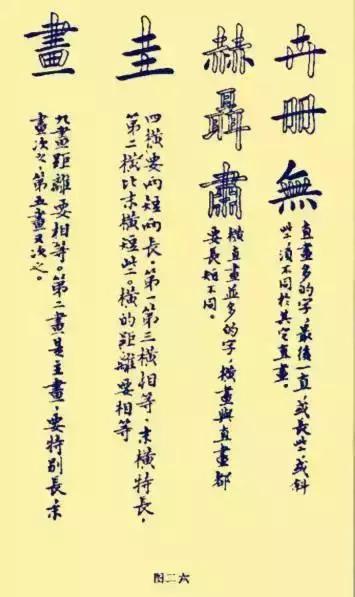 卉冊無
直畫多的字，最後一直，或長些，或斜
些，須不同於其它直畫。
赫聶肅
橫直畫並多的字，橫畫與直畫都
要長短不同。
圭
四橫要兩短兩長。第一第三橫相等，末橫特長，
第二橫比末橫短些。橫的距離要相等
畫
九畫距離要相等。第二畫是主畫，要特別長，末
畫次之，第五畫又次之。
图二六